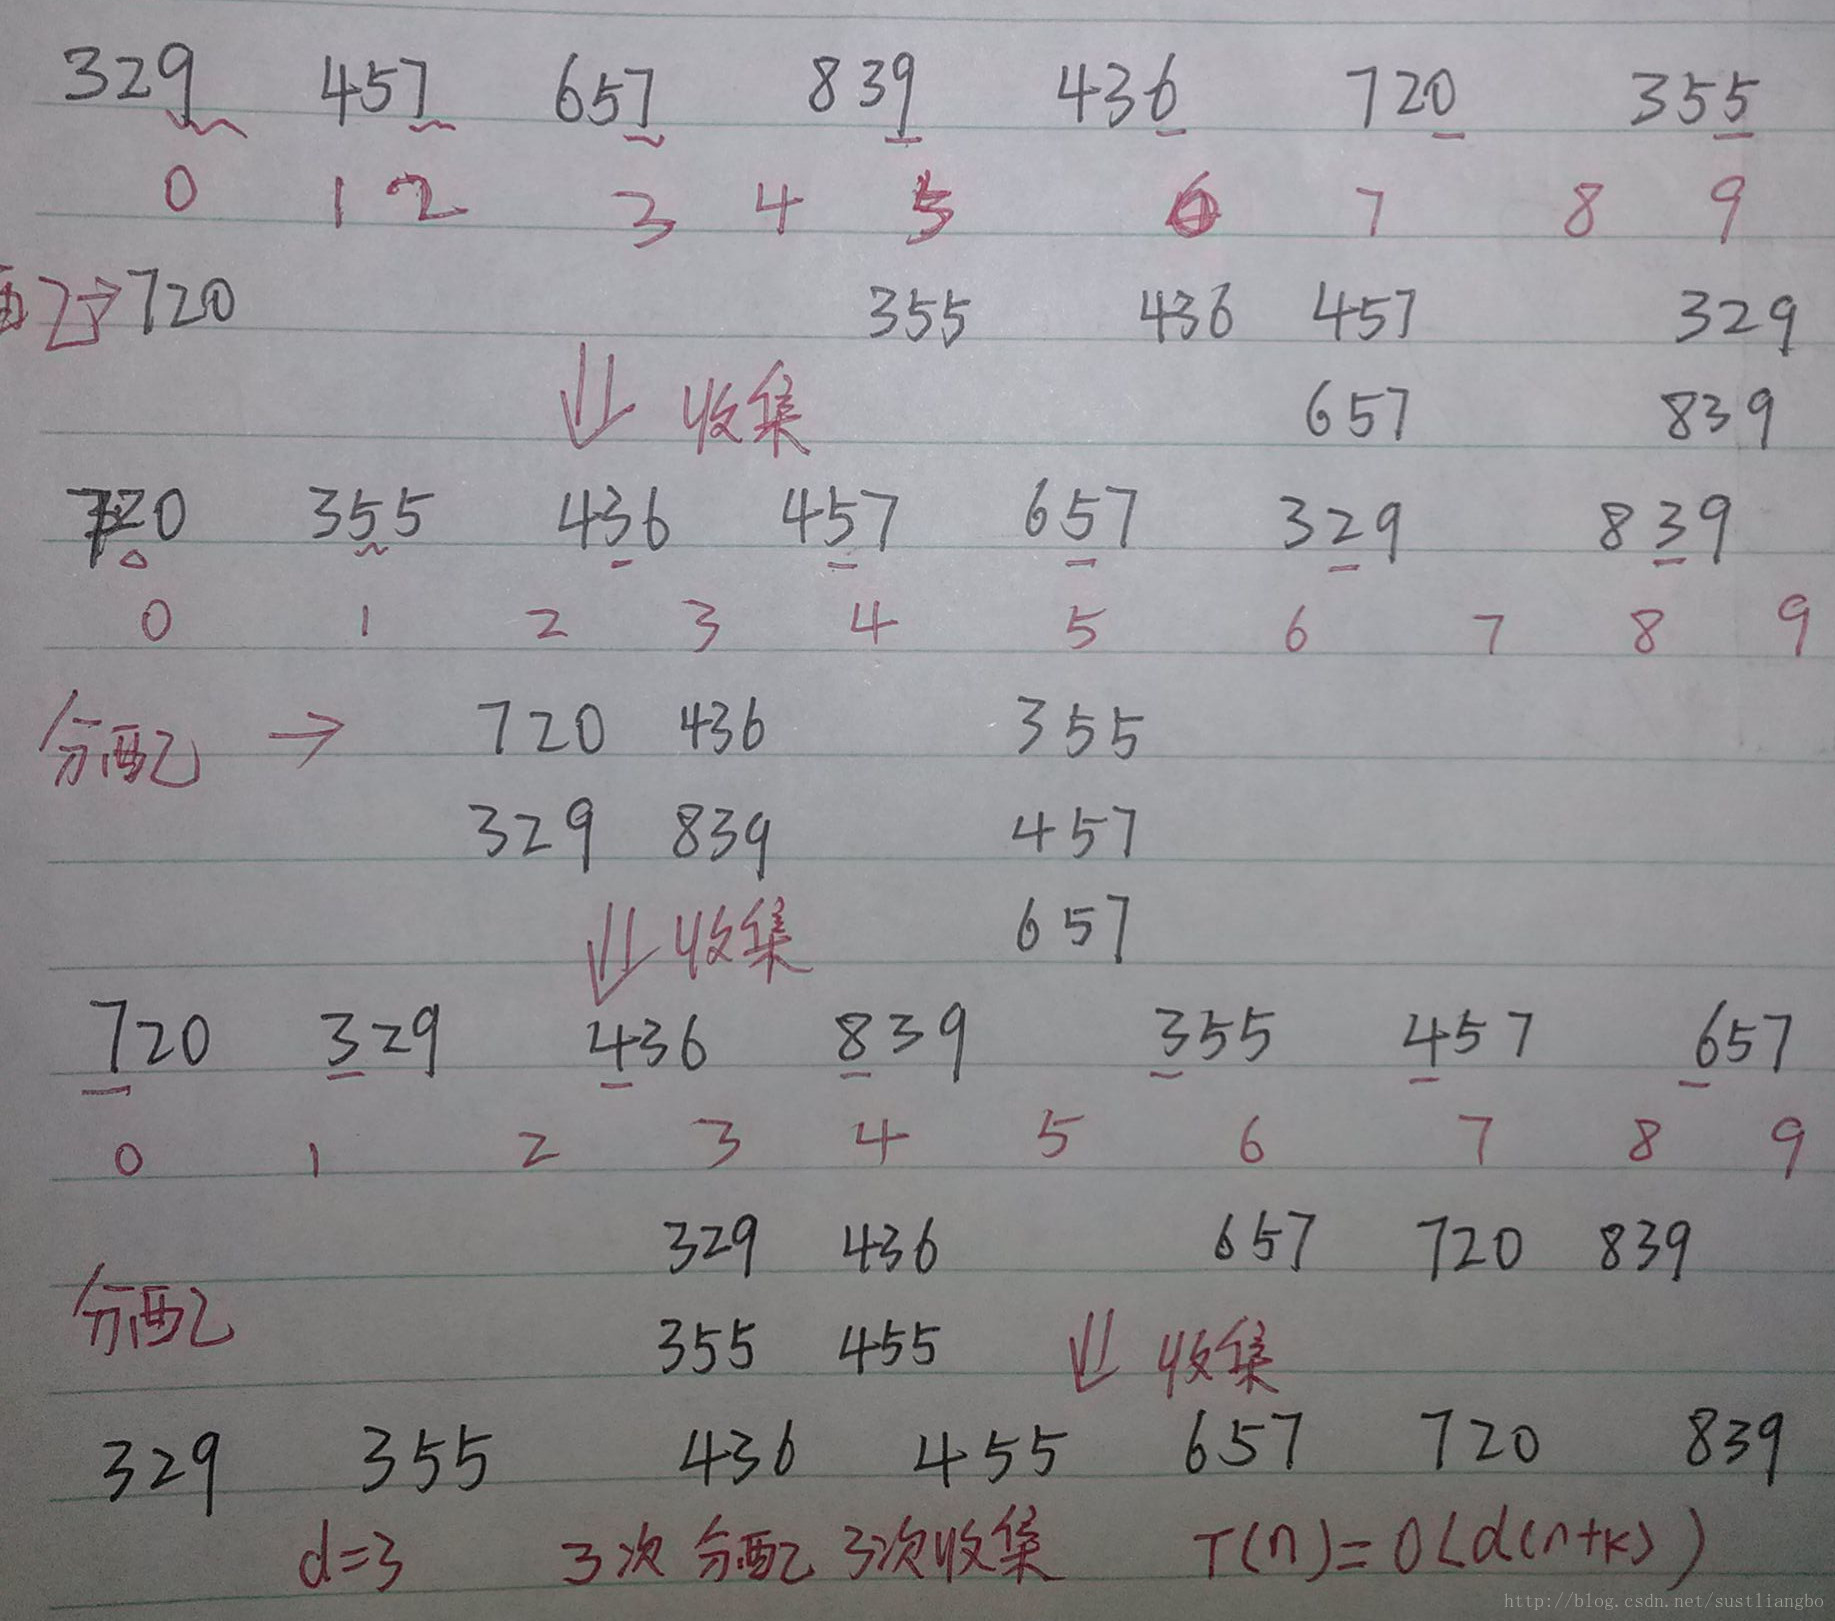 329 457 657 839 436 720 355
0 1 2 3 4 5 6 7 8 9
配→720 355 436 457 329
收集 657 839
720 355 436 457 657 329 839
0 1 2 3 4 5 6 7 8 9
分配 → 720 436 355
329 839 457
收集 657
720 329 436 839 355 457 657
0 1 2 3 4 5 6 7 8 9
329 436 657 720 839
分配 355 455 收集
329 355 436 455 657 720 839
d=3 3次分配 3次收集 T(n)=O(d(n+k))
http://blog.csdn.net/sustliangbo